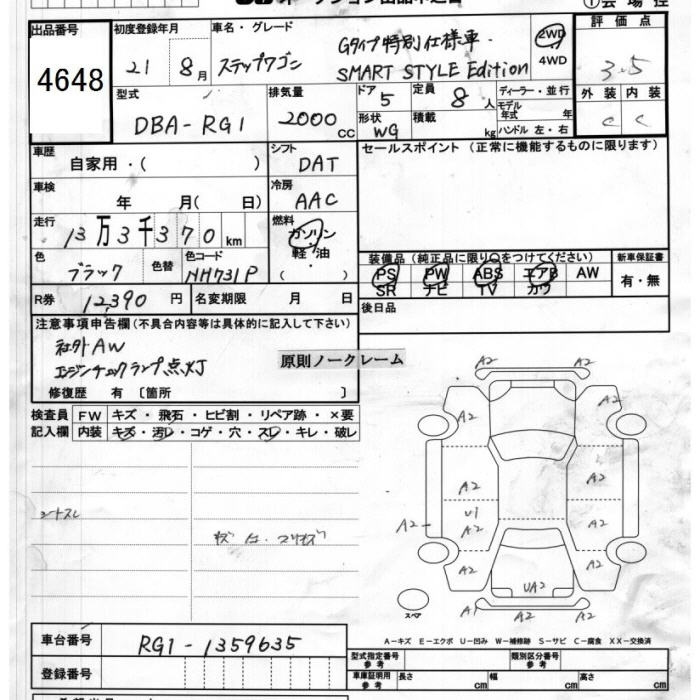 出品番号 初度登録年月 車名・グレード 評価点
4648 21 8月 ステップワゴン Gタイプ特別仕様車 2WD 3.5
SMART STYLE Edition 4WD
型式 排気量 ドア 5 定員 8人 ディーラー・並行 外装 内装
DBA-RG1 2000cc 形状 WG 積載 kg モデル年式 年 C C
ハンドル 左・右
車歴 シフト セールスポイント(正常に機能するものに限ります)
自家用・( ) DAT
車検 冷房
年 月( 日) AAC
走行 燃料
13万3千370km ガソリン
色 色替 色コード 軽油
ブラック NH731P ( ・ )
装備品(純正品に限り○をつけてください) 新車保証書
PS PW ABS エアB AW 有・無
SR ナビ TV カワ
R券 12,390円 名変期限 月 日 後日品
注意事項申告欄(不具合内容等は具体的に記入して下さい)
社外AW
エンジンチェックランプ点灯
原則ノークレーム
修復歴 有 〔箇所 〕
検査員 FW キズ・飛石・ヒビ割・リペア跡・×要
記入欄 内装 キズ・汚レ・コゲ・穴・スレ・キレ・破レ
シートスレ
A2 A2
A2 A2
A2 A2
U1
A2 A2 A2
A2 A2
UA2
A1 A2
スペア
A-キズ E-エクボ U-凹み W-補修跡 S-サビ C-腐食 XX-交換済
車台番号 RG1-1359635
登録番号
型式指定番号 参考 類別区分番号 参考
車庫証明用 参考 長さ cm 幅 cm 高さ cm